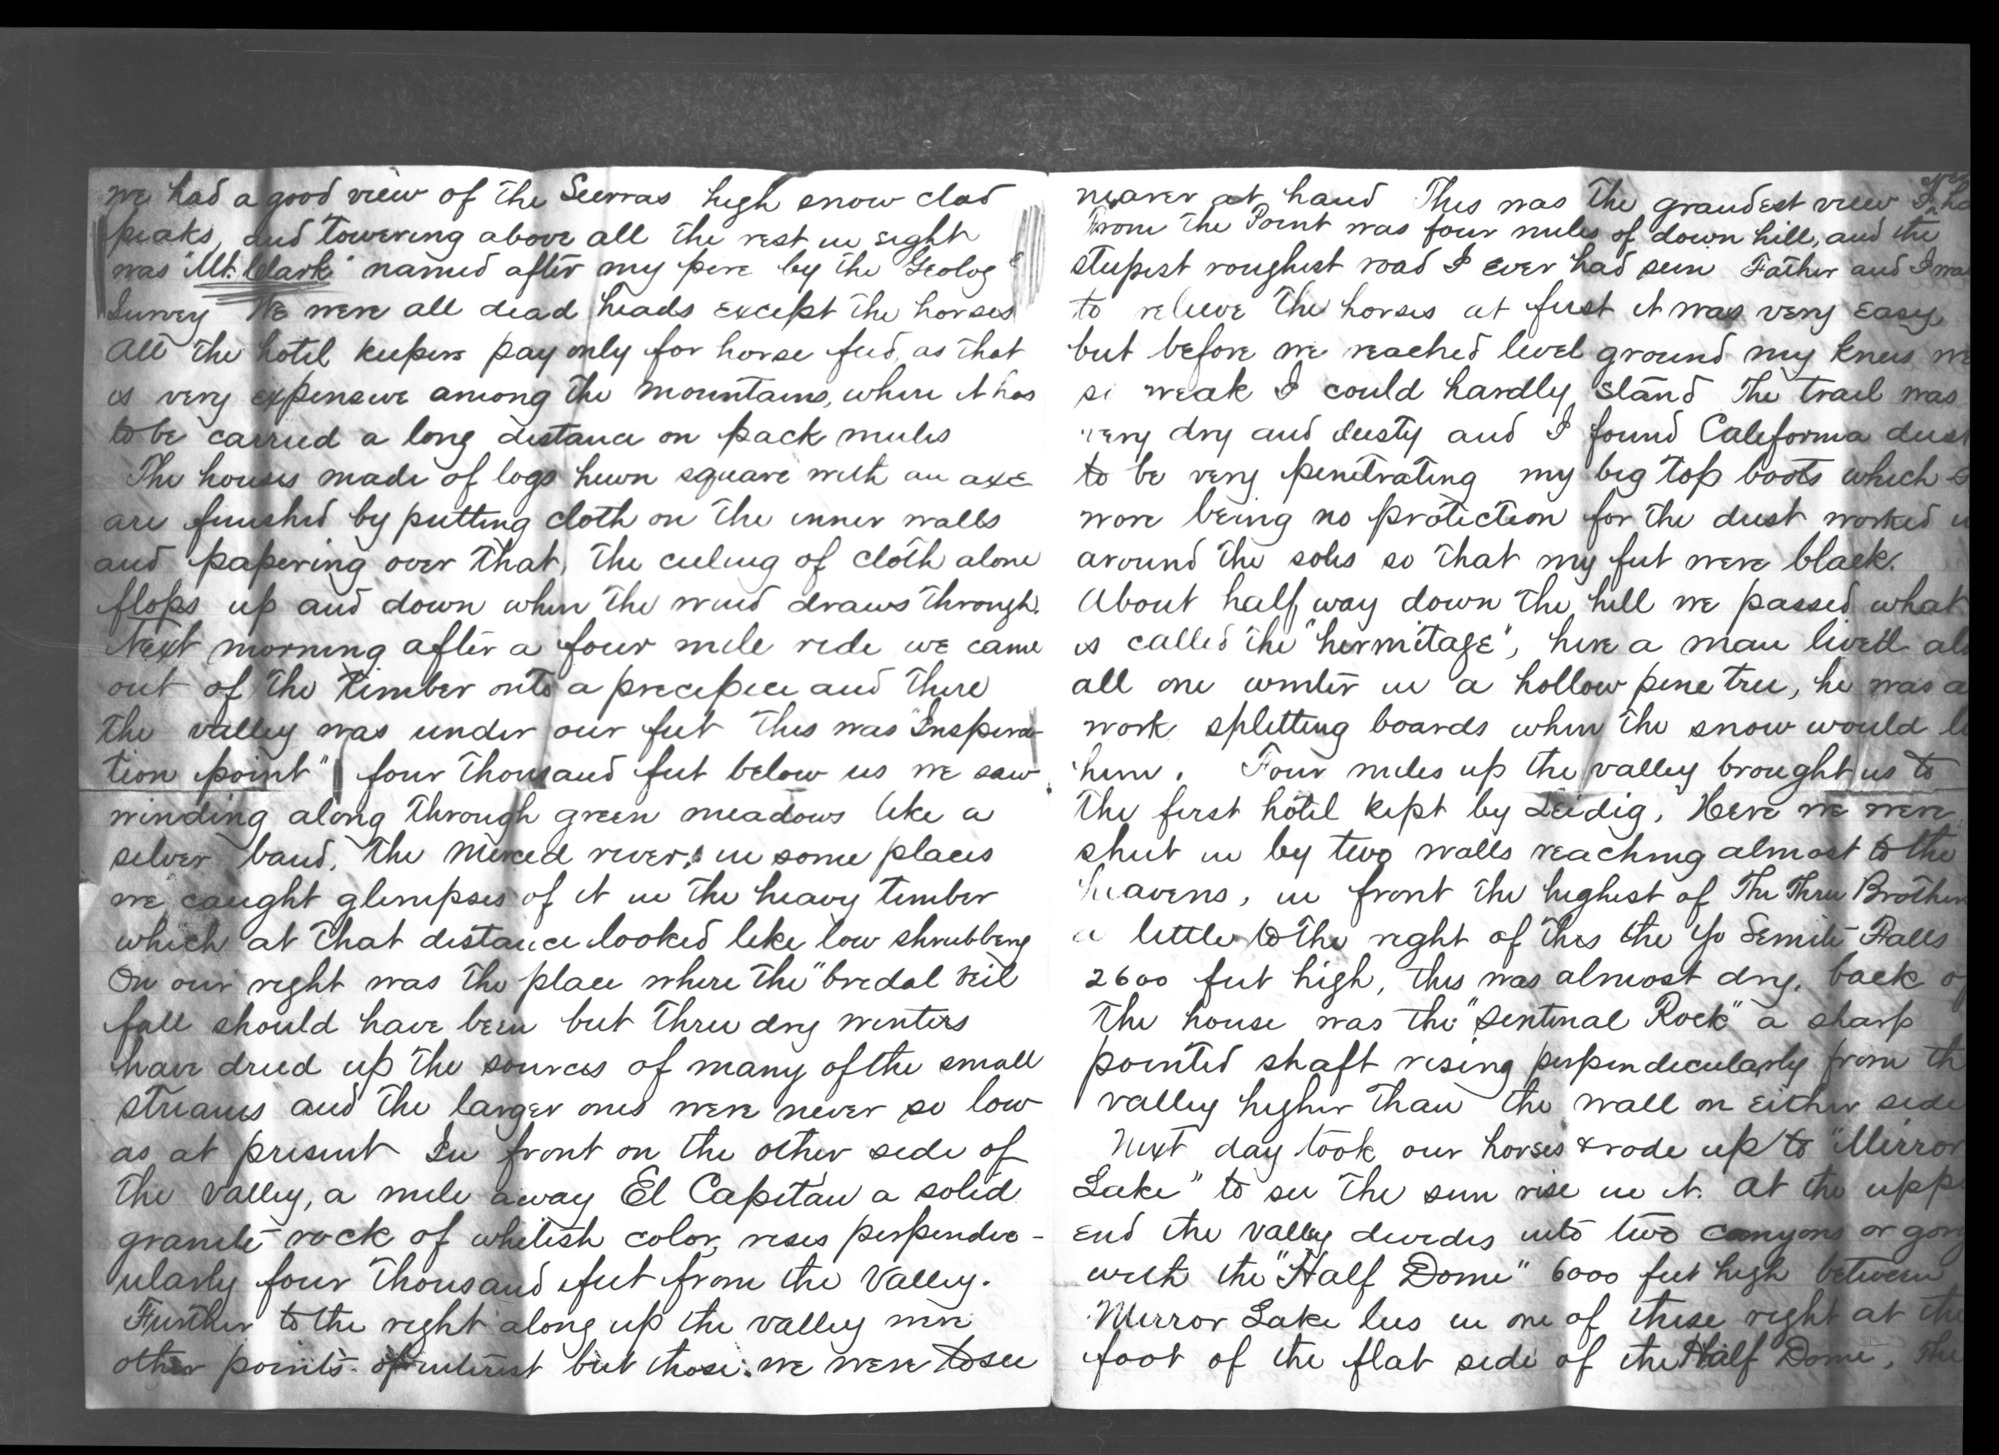 we had a good view of the Sierras high snow clad
peaks, and towering above all the rest in sight
was "Mt. Clark" named after my pere by the Geolog'l
Survey We were all dead heads except the horses
All the hotel keepers pay only for horse feed, as that
is very expensive among the mountains, where it has
to be carried a long distance on pack mules
The houses made of logs hewn square with an axe
are finished by putting cloth on the inner walls
and papering over that, the ceiling of cloth alone
flops up and down when the wind draws through.
Next morning after a four mile ride we came
out of the timber onto a precipice and there
the valley was under our feet This was "Inspira-
tion point" four thousand feet below us we saw
winding along through green meadows like a
silver band, the Merced river, in some places
we caught glimpses of it in the heavy timber
which at that distance looked like low shrubbery
On our right was the place where the "bridal veil
fall should have been but three dry winters
have dried up the sources of many of the small
streams and the larger ones were never so low
as at present In front on the other side of
the valley, a mile away El Capitan a solid
granite rock of whitish color, rises perpendic-
ularly four thousand feet from the Valley.
Further to the right along up the valley were
other points of interest but those we were to see
nearer at hand This was the grandest view I
From the Point was four miles of down hill, and the
steepest roughest road I ever had seen Father and I
to relieve the horses at first it was very easy
but before we reached level ground my knees
so weak I could hardly stand The trail was
very dry and dusty and I found California dust
to be very penetrating my big top boots which
wore being no protection for the dust worked
around the soles so that my feet were black.
About half way down the hill we passed what
is called the "hermitage", here a man lived
all one winter in a hollow pine tree, he was
work splitting boards when the snow would
him. Four miles up the valley brought us to
the first hotel kept by Leidig, Here we were
shut in by two walls reaching almost to the
heavens, in front the highest of The Three Brothers
a little to the right of this the Yo Semite Falls
2600 feet high, this was almost dry, back of
the house was the "Sentinal Rock" a sharp
pointed shaft rising perpendicularly from the
valley higher than the wall on either side
Next day took our horses & rode up to "Mirror
Lake" to see the sun rise in it. At the
end the valley divides into two canyons or
with the "Half Dome" 6000 feet high between
Mirror Lake lies in one of these right at the
foot of the flat side of the Half Dome, The